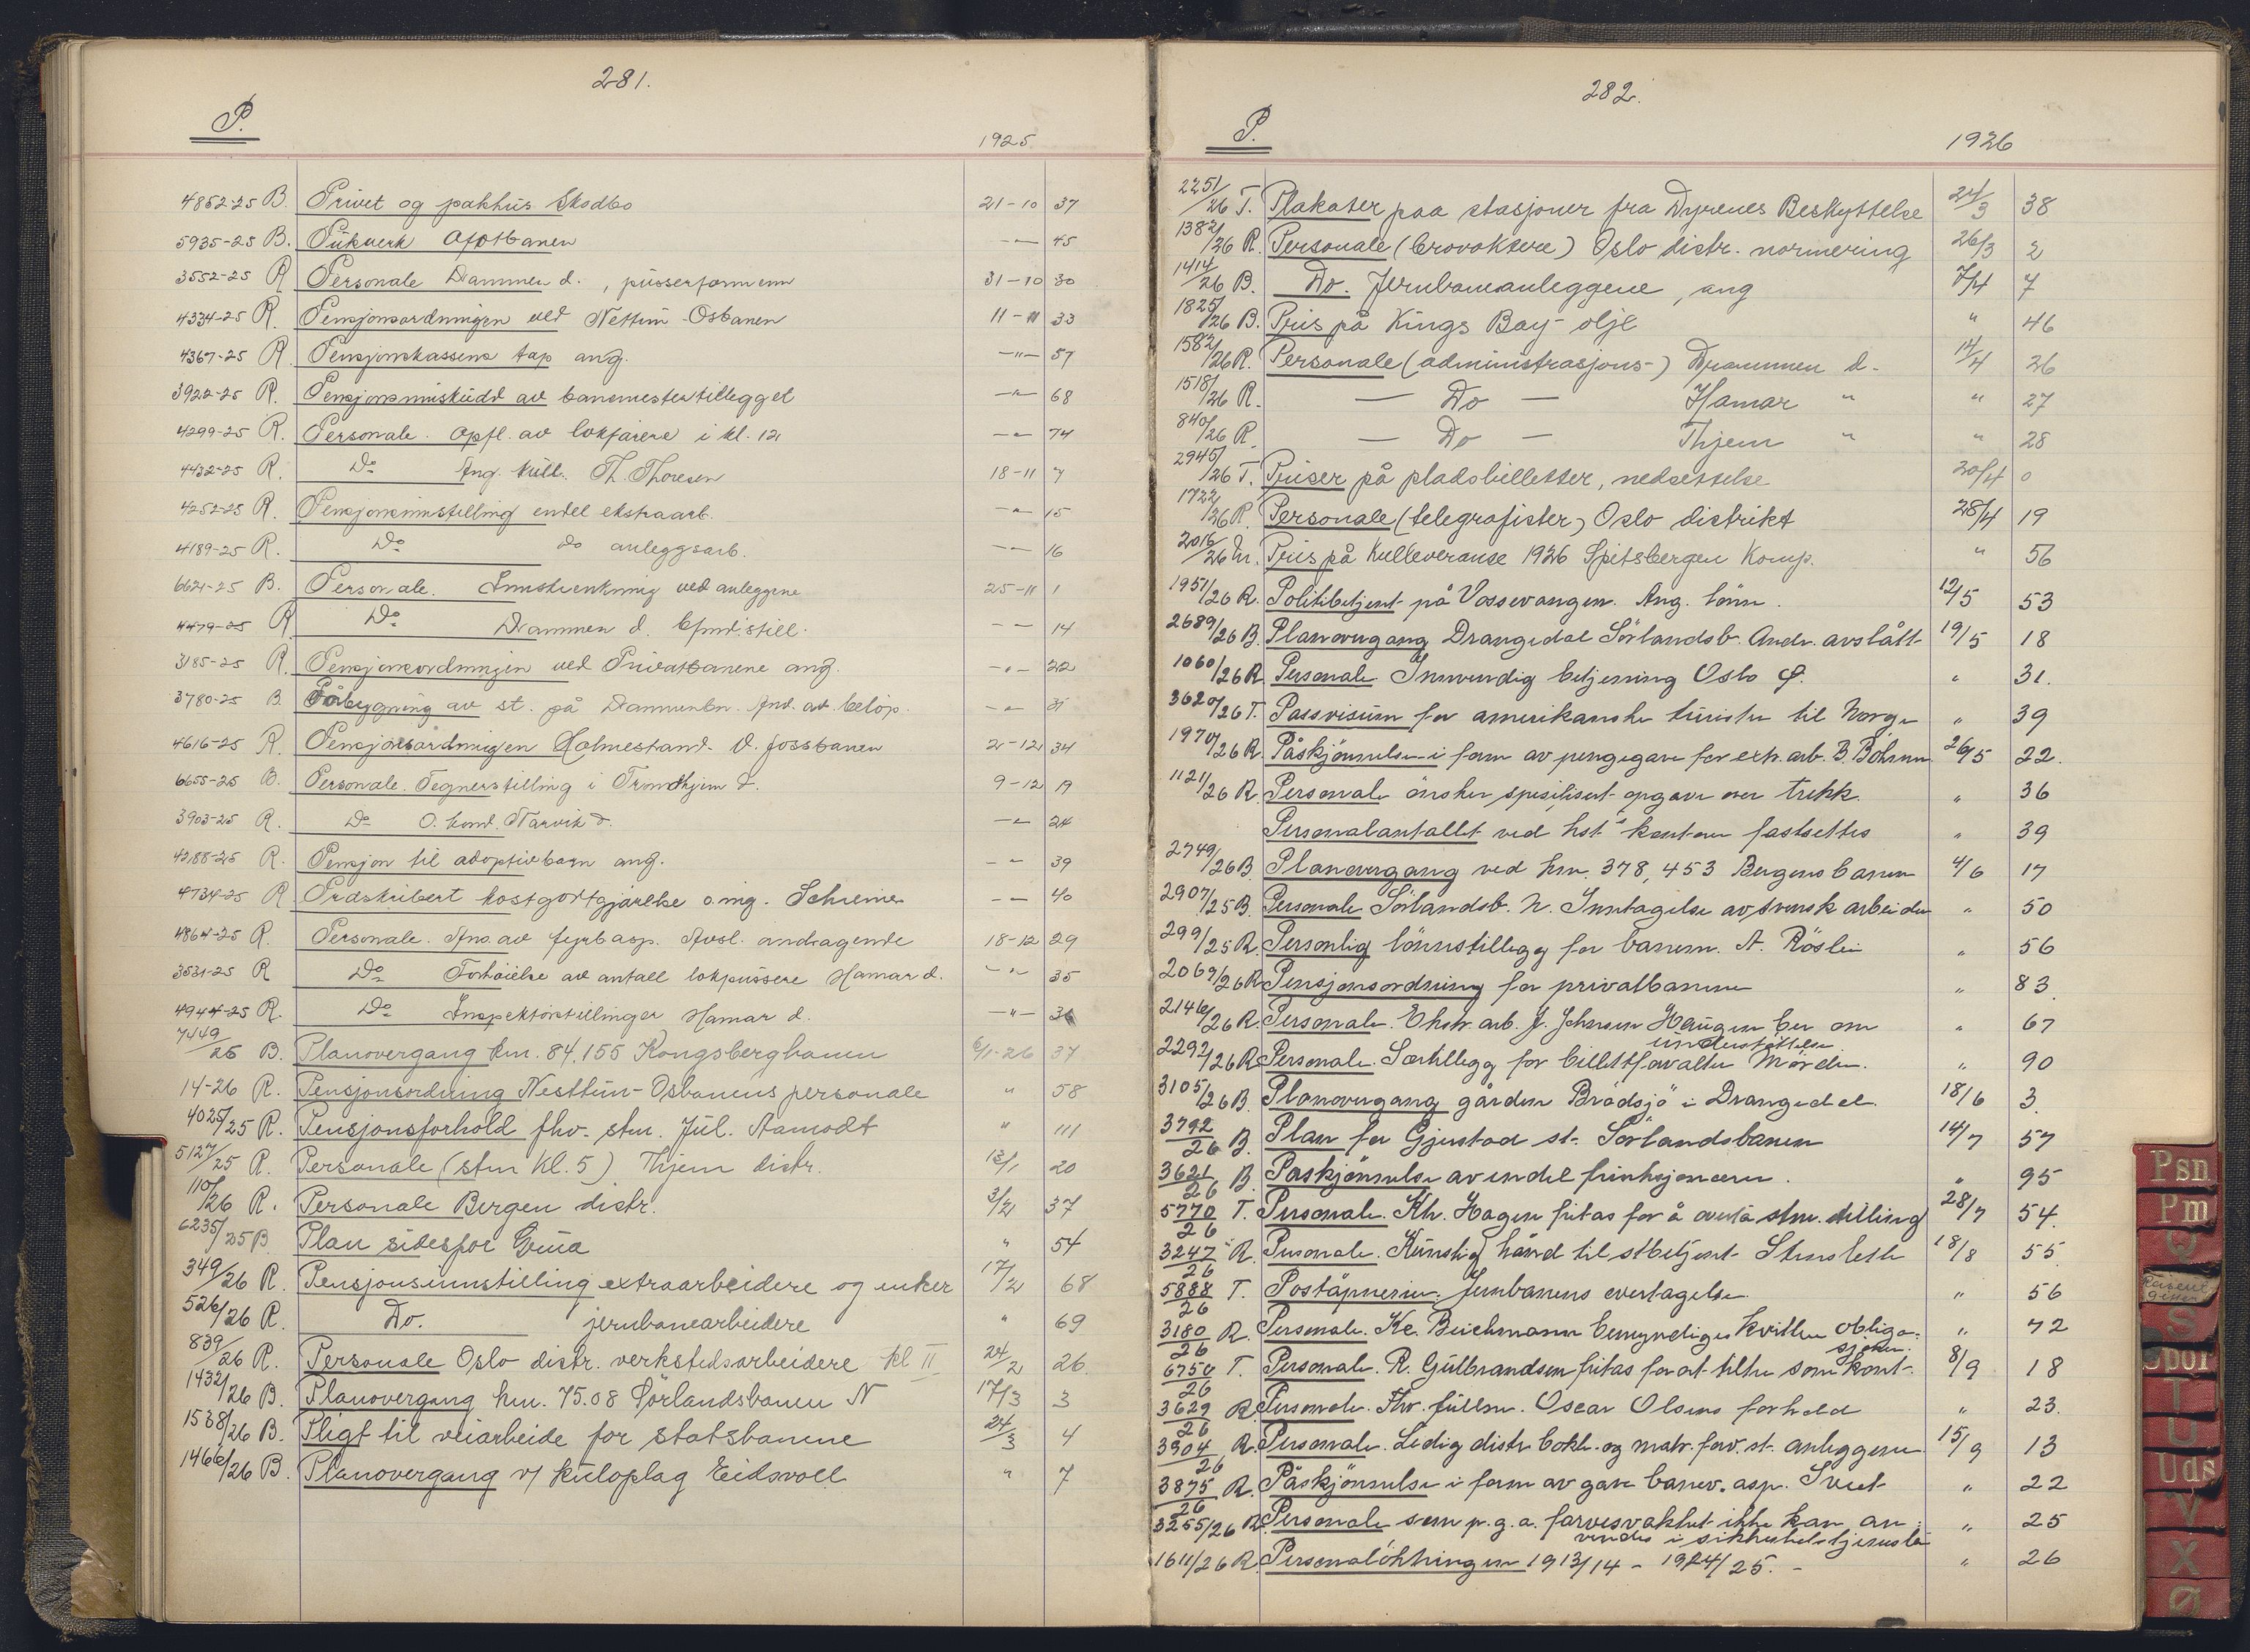 281.
P.
1925
4852-25 B. Privet og pakhus Skodbo 21-10 37
5935-25 B. Pukverk Ofotbanen -"- 45
3552-25 R Personale Drammen d., pusserformenn 31-10 30
4334-25 R. Pensjonsordningen ved Nettun-Osbanen 11-11 33
4367-25 R. Pensjonskassens tap ang. -"- 57
3922-25 R. Pensjonsinnskudd av banemestertillegget -"- 68
4299-25 R. Personale. Opfl. av lokførere i kl. 12 -"- 74
4432-25 R. Do Ang. fullm. Th. Thoresen 18-11 7
4252-25 R. Pensjonsinnstilling endel ekstraarb. -"- 15
4189-25 R. Do do anleggsarb. -"- 16
6621-25 B. Personale. Innskrenkning ved anleggene 25-11 1
4479-25 R Do Drammen d. still. -"- 14
3185-25 R. Pensjonsordningen ved Privatbanene ang. -"- 22
3780-25 B. Påbygning av st. på Drammenbn. And. av. beløp. -"- 31
4616-25 R. Pensjonsordningen Holmestrand-V. fossbanen 2-12 34
6655-25 B. Personale. Tegnerstilling i Trondhjem d. 9-12 19
3903-25 R. Do O. kond. Narvik d. -"- 24
4288-25 R. Pensjon til adoptivbarn ang. -"- 39
4734-25 R Prdskribert kostgodtgjørelse o.ing. Schreiner -"- 40
4864-25 R. Personale. Ans. av fyrb.asp. Avsl. andragende 18-12 29
3531-25 R Do Forhøielse av antall lokpussere Hamar d. -"- 35
4944-25 R. Do Inspektørstillinger Hamar d. -"- 36
7449/25 B. Planovergang km. 84,155 Kongsbergbanen 6/1-26 37
14-26 R. Pensjonsordning Nesttun-Osbanens personale " 58
4025/25 R. Pensjonsforhold fhv. stm. Jul. Aamodt " 111
5127/25 R. Personale (stm kl. 5) Thjem distr. 13/1 20
110/26 R. Personale Bergen distr. 3/2 37
6235/25 B Plan sidespor Grua " 54
349/26 R. Pensjonsinnstilling extraarbeidere og enker 17/2 68
526/26 R. Do. jernbanearbeidere " 69
839/26 R. Personale Oslo distr. verkstedsarbeidere kl II 24/2 26
1432/26 B. Planovergang km. 75.08 Sørlandsbanen N 17/3 3
1538/26 B. Pligt til veiarbeide for statsbanene 24/3 4
1466/26 B. Planovergang v/ kuloplag Eidsvoll " 7
282.
P.
1926
2251/26 T. Plakater paa stasjoner fra Dyrenes Beskyttelse 24/3 38
1382/26 R. Personale (brovoktere) Oslo distr. normering 26/3 2
1414/26 B. Do. Jernbaneanleggene, ang 7/4 7
1825/26 B. Pris på Kings Bay-olje " 46
1582/26 R. Personale (administrasjons-) Drammen d. 14/4 26
1518/26 R. — Do — Hamar " " 27
840/26 R. — Do — Thjem " " 28
2945/26 T. Priser på pladsbilletter, nedsettelse 20/4 0
1722/26 R. Personale (telegrafister) Oslo distrikt 28/4 19
2016/26 M. Pris på kulleveranse 1926 Spitsbergen Komp. " 56
1951/26 R. Politibetjent på Vossevangen. Ang. lønn. 12/5 53
2689/26 B. Planovergang Drangedal Sørlandsb. Andr. avslått 19/5 18
1060/26 R. Personale Innvendig betjening Oslo Ø. " 31.
3620/26 T. Passvisum for amerikanske turister til Norge " 39
1970/26 R. Påskjønnelse i form av pengegave for extr. arb. B. Bøhmer 26/5 22.
1121/26 R. Personale ønsker spesifisert opgave over trekk. " 36
Personalantallet ved hst.s kontorer fastsettes " 39
2749/26 B. Planovergang ved km. 378,453 Bergensbanen 4/6 17
2907/25 B. Personale Sørlandsb. N. Inntagelse av svensk arbeider " 50
299/25 R. Personlig lønnstillegg for banem. A. Røslie " 56
2069/26 R Pensjonsordning for privatbanene " 83
2146/26 R. Personale. Ekstr. arb. J. Johnsen Haugen ber om understøttelse " 67
2292/26 R. Personale. Særtillegg for billettforvalter Mørden. " 90
3105/26 B. Planovergang gården Brødsjø i Drangedal. 18/6 3.
3792/26 B. Plan for Gjerstad st. Sørlandsbanen 14/7 57
3621/26 B. Paskjønnelse av endel funksjonærer. " 95
5770/26 T. Personale. Kh. Hagen fritas for å overta stm. stilling 28/7 54
3247/26 R. Personale. Kunstig hånd til stbetjent Stensleth 18/8 55
5888/26 T. Poståpnerier. Jernbanens overtagelse " 56
3180/26 R. Personale. Kr. Beichmann bemyndiges kvittere obligasjoner. " 72
6750/26 T. Personale. R. Gulbrandsen fritas for at tiltre som kont. 8/9 18
3629/26 R. Personale. Fhv. fullm. Oscar Olsens forhold " 23.
3904/26 R. Personale. Ledig distr. bokh. og matr. forv. st. anleggene 15/9 13
3875/26 R. Påskjønnelse i form av gave banev. asp. Sveet " 22
3255/26 R. Personale som p.g.a. farvesvakhet ikke kan anvendes i sikkerhetstjeneste " 25
1611/26 R. Personaløkningen 1913/14 - 1924/25. - " 26
Psn
Pm
Q
S
Spor
T
U
Uds
V
X
Ø